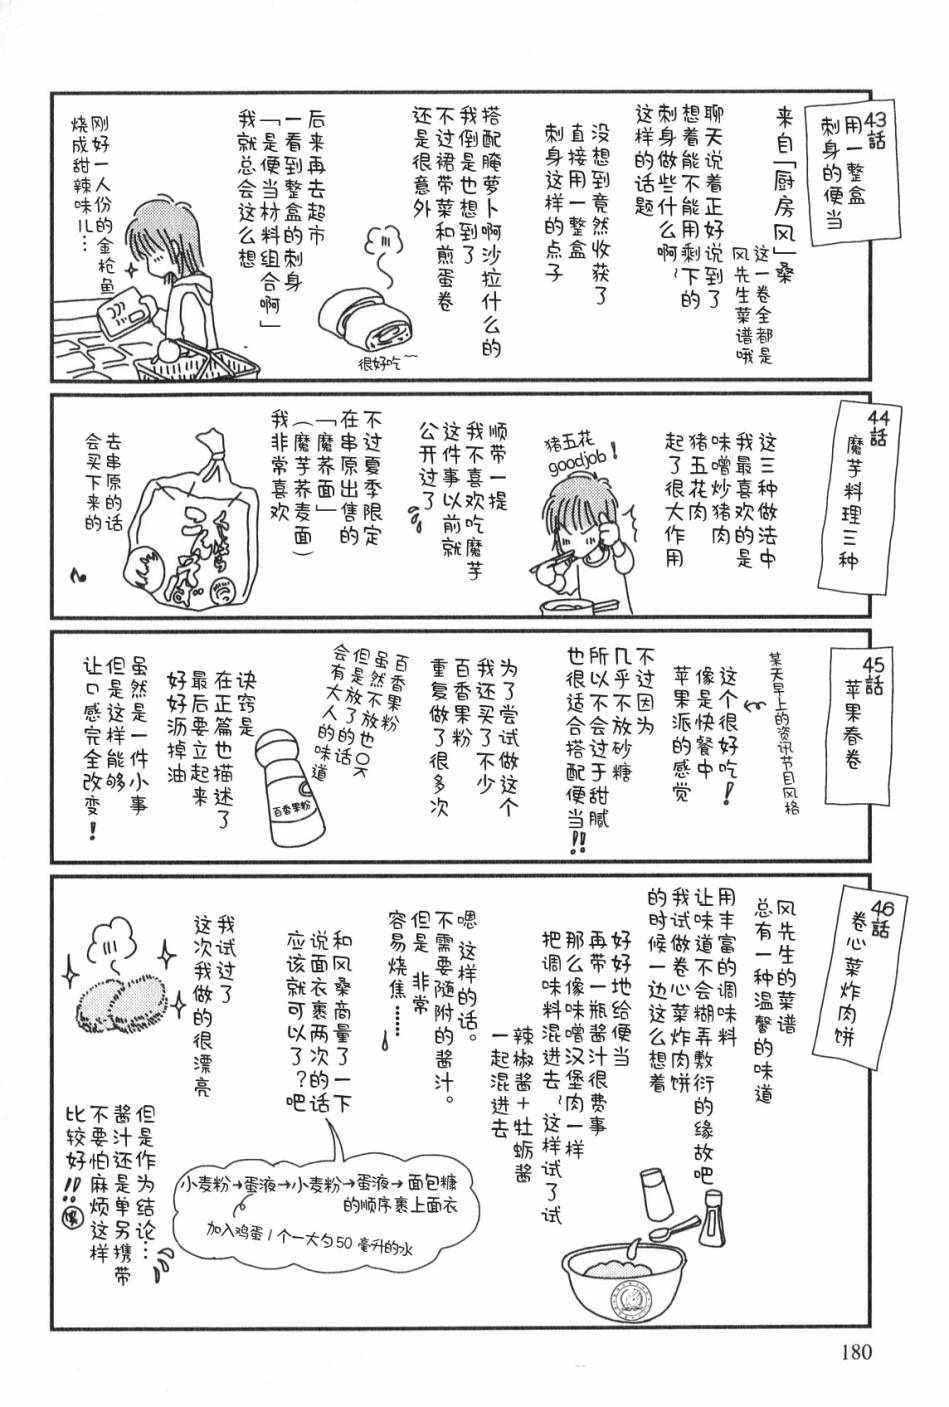 43話
用一整盒
刺身的便当
来自「厨房风」桑
这一卷全都是
风先生菜谱哦
聊天说着正好说到了
想着能不能用剩下的
刺身做些什么啊~
这样的话题
没想到竟然收获了
直接用一整盒
刺身这样的点子
搭配腌萝卜啊沙拉什么的
我倒是也想到了
不过裙带菜和煎蛋卷
还是很意外
很好吃~
后来再去超市
一看到整盒的刺身
「是便当材料组合啊」
我就总会这么想
刚好一人份的金枪鱼
烧成甜辣味儿…
44話
魔芋料理三种
这三种做法中
我最喜欢的是
味噌炒猪肉
猪五花肉
起了很大作用
猪五花
goodjob!
顺带一提
我不喜欢吃魔芋
这件事以前就
公开过了
不过夏季限定
在串原出售的
「魔荞面」
(魔芋荞麦面)
我非常喜欢
去串原的话
会买下来的
45話
苹果春卷
某天早上的资讯节目风格
这个很好吃!
像是快餐中
苹果派的感觉
不过因为
几乎不放砂糖
所以不会过于甜腻
也很适合搭配便当!!
为了尝试做这个
我还买了不少
百香果粉
重复做了很多次
百香果粉
虽然不放也OK
但是放了的话
会有大人的味道
百香果粉
诀窍是
在正篇也描述了
最后要立起来
好好沥掉油
虽然是一件小事
但是这样能够
让口感完全改变!
46話
卷心菜炸肉饼
风先生的菜谱
总有一种温馨的味道
用丰富的调味料
让味道不会糊弄敷衍的缘故吧
我试做卷心菜炸肉饼
的时候一边这么想着
好好地给便当
再带一瓶酱汁很费事
那么像味噌汉堡肉一样
把调味料混进去~这样试了试
辣椒酱+牡蛎酱
一起混进去
嗯 这样的话。
不需要随附的酱汁。
但是 非常
容易烧焦……
和风桑商量了一下
说面衣裹两次的话
应该就可以了?吧
小麦粉→蛋液→小麦粉→蛋液→面包糠
的顺序裹上面衣
加入鸡蛋1个一大勺50毫升的水
我试过了
这次我做的很漂亮
但是作为结论…
酱汁还是单另携带
不要怕麻烦这样
比较好!!
180